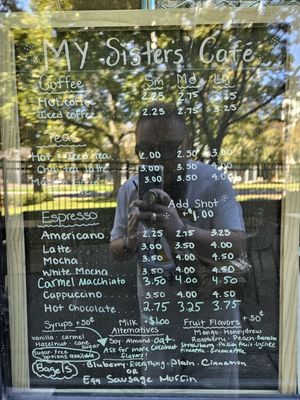 MY Sisters Café
Coffee Sm Md Lg
Hot coffee 2.25 2.75 3.25
Iced coffee 2.25 2.75 3.25
Tea
Hot + Iced tea 2.00 2.50 3.00
Chai tea latte 3.00 3.50 4.00
3.00 3.50 4.00
Add Shot
+ 1.00
Espresso
Americano 2.25 2.75 3.25
Latte 3.00 3.50 4.00
Mocha 3.50 4.00 4.50
White Mocha 3.50 4.00 4.50
Carmel Macchiato 3.50 4.00 4.50
Cappuccino 3.50 4.00 4.50
Hot Chocolate 2.75 3.25 3.75
Syrups +50¢
Vanilla - carmel
Hazelnut - cane sugar
Sugar free options available
Milk +$1.00
Alternatives
Soy - Almond - oat -
Coconut
Ask for more flavors!
Fruit Flavors +50¢
Mango - Honeydew
Raspberry - Peach - Banana
Strawberry - Passion fruit - Lychee
Pineapple - Greenapple
Bagels Blueberry - Everything - Plain - Cinnamon
OR
Egg Sausage Muffin